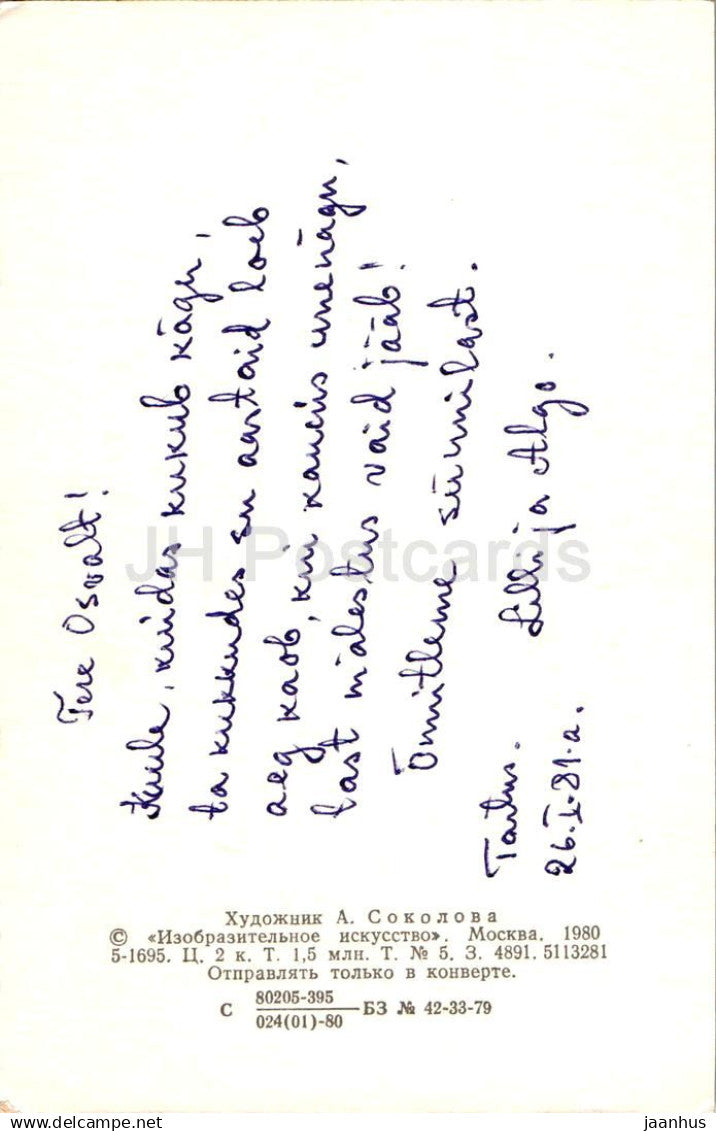 Tere Osvalt!
Kuule, kuidas kukub kägu,
ta kukkudes su aastaid loeb
aeg kaob, kui kaunis unenägu,
last mälestus vaid jääb!
Õnnitleme sünnilast.
Lilli ja Algo.
Tartus.
26.I-81.a.
JH Postcards
Художник А. Соколова
© «Изобразительное искусство». Москва. 1980
5-1695. Ц. 2 к. Т. 1,5 млн. Т. № 5. З. 4891. 5113281
Отправлять только в конверте.
С 80205-395 БЗ № 42-33-79
024(01)-80
www.delcampe.net
jaanhus